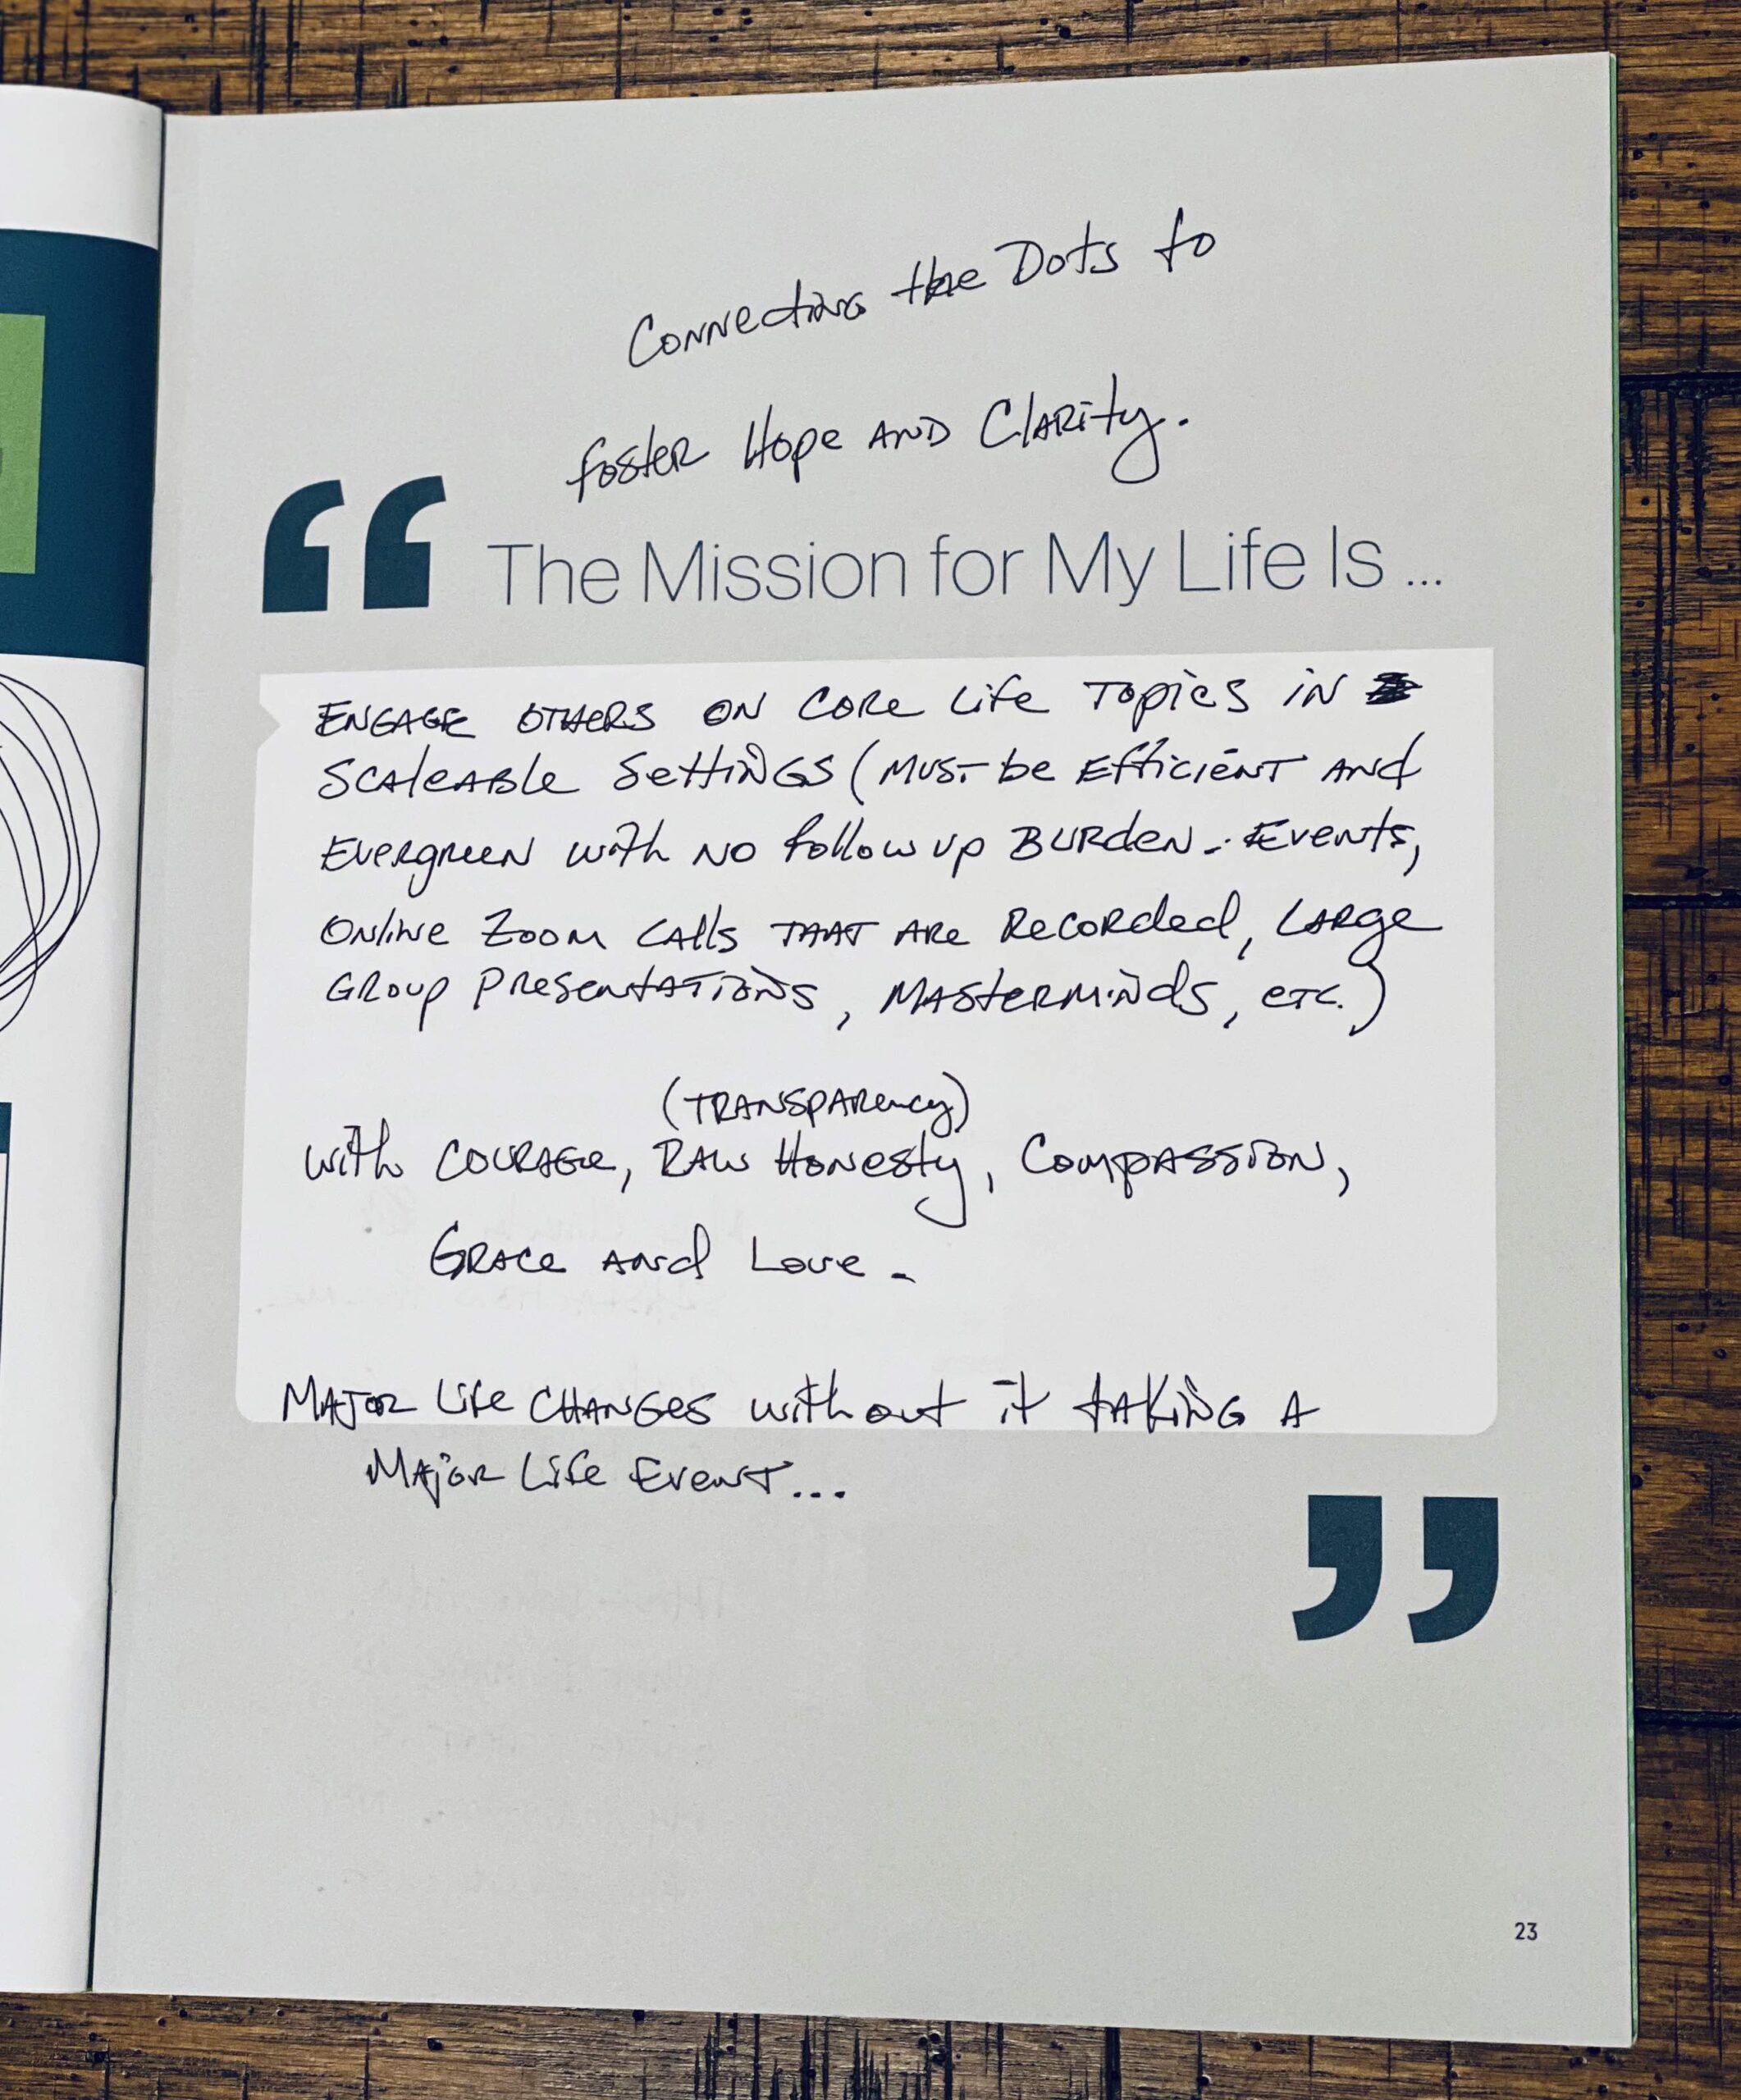 Connecting the Dots to
foster Hope AND Clarity.
“ The Mission for My Life Is ...
ENGAGE OTHERS ON CORE Life Topics in
Scaleable Settings (Must be Efficient AND
Evergreen with NO follow up BURDEN - Events,
Online Zoom calls THAT ARE Recorded, Large
Group Presentations, Masterminds, etc.)
(TRANSPARENCY)
with COURAGE, RAW Honesty, Compassion,
Grace and Love.
Major Life CHANGES without it taking A
Major Life Event...
”
23